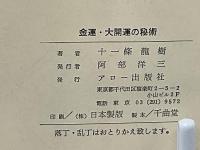 金運・大開運の秘術
著者 十一條龍樹
発行者 阿部洋三
発行 アロー出版社
東京都千代田区猿楽町2-5-2
小山ビル2F
電話 東京 03 (291) 9572
印刷/(株)日本製版 製本/千曲堂
落丁・乱丁はおとりかえ致します。